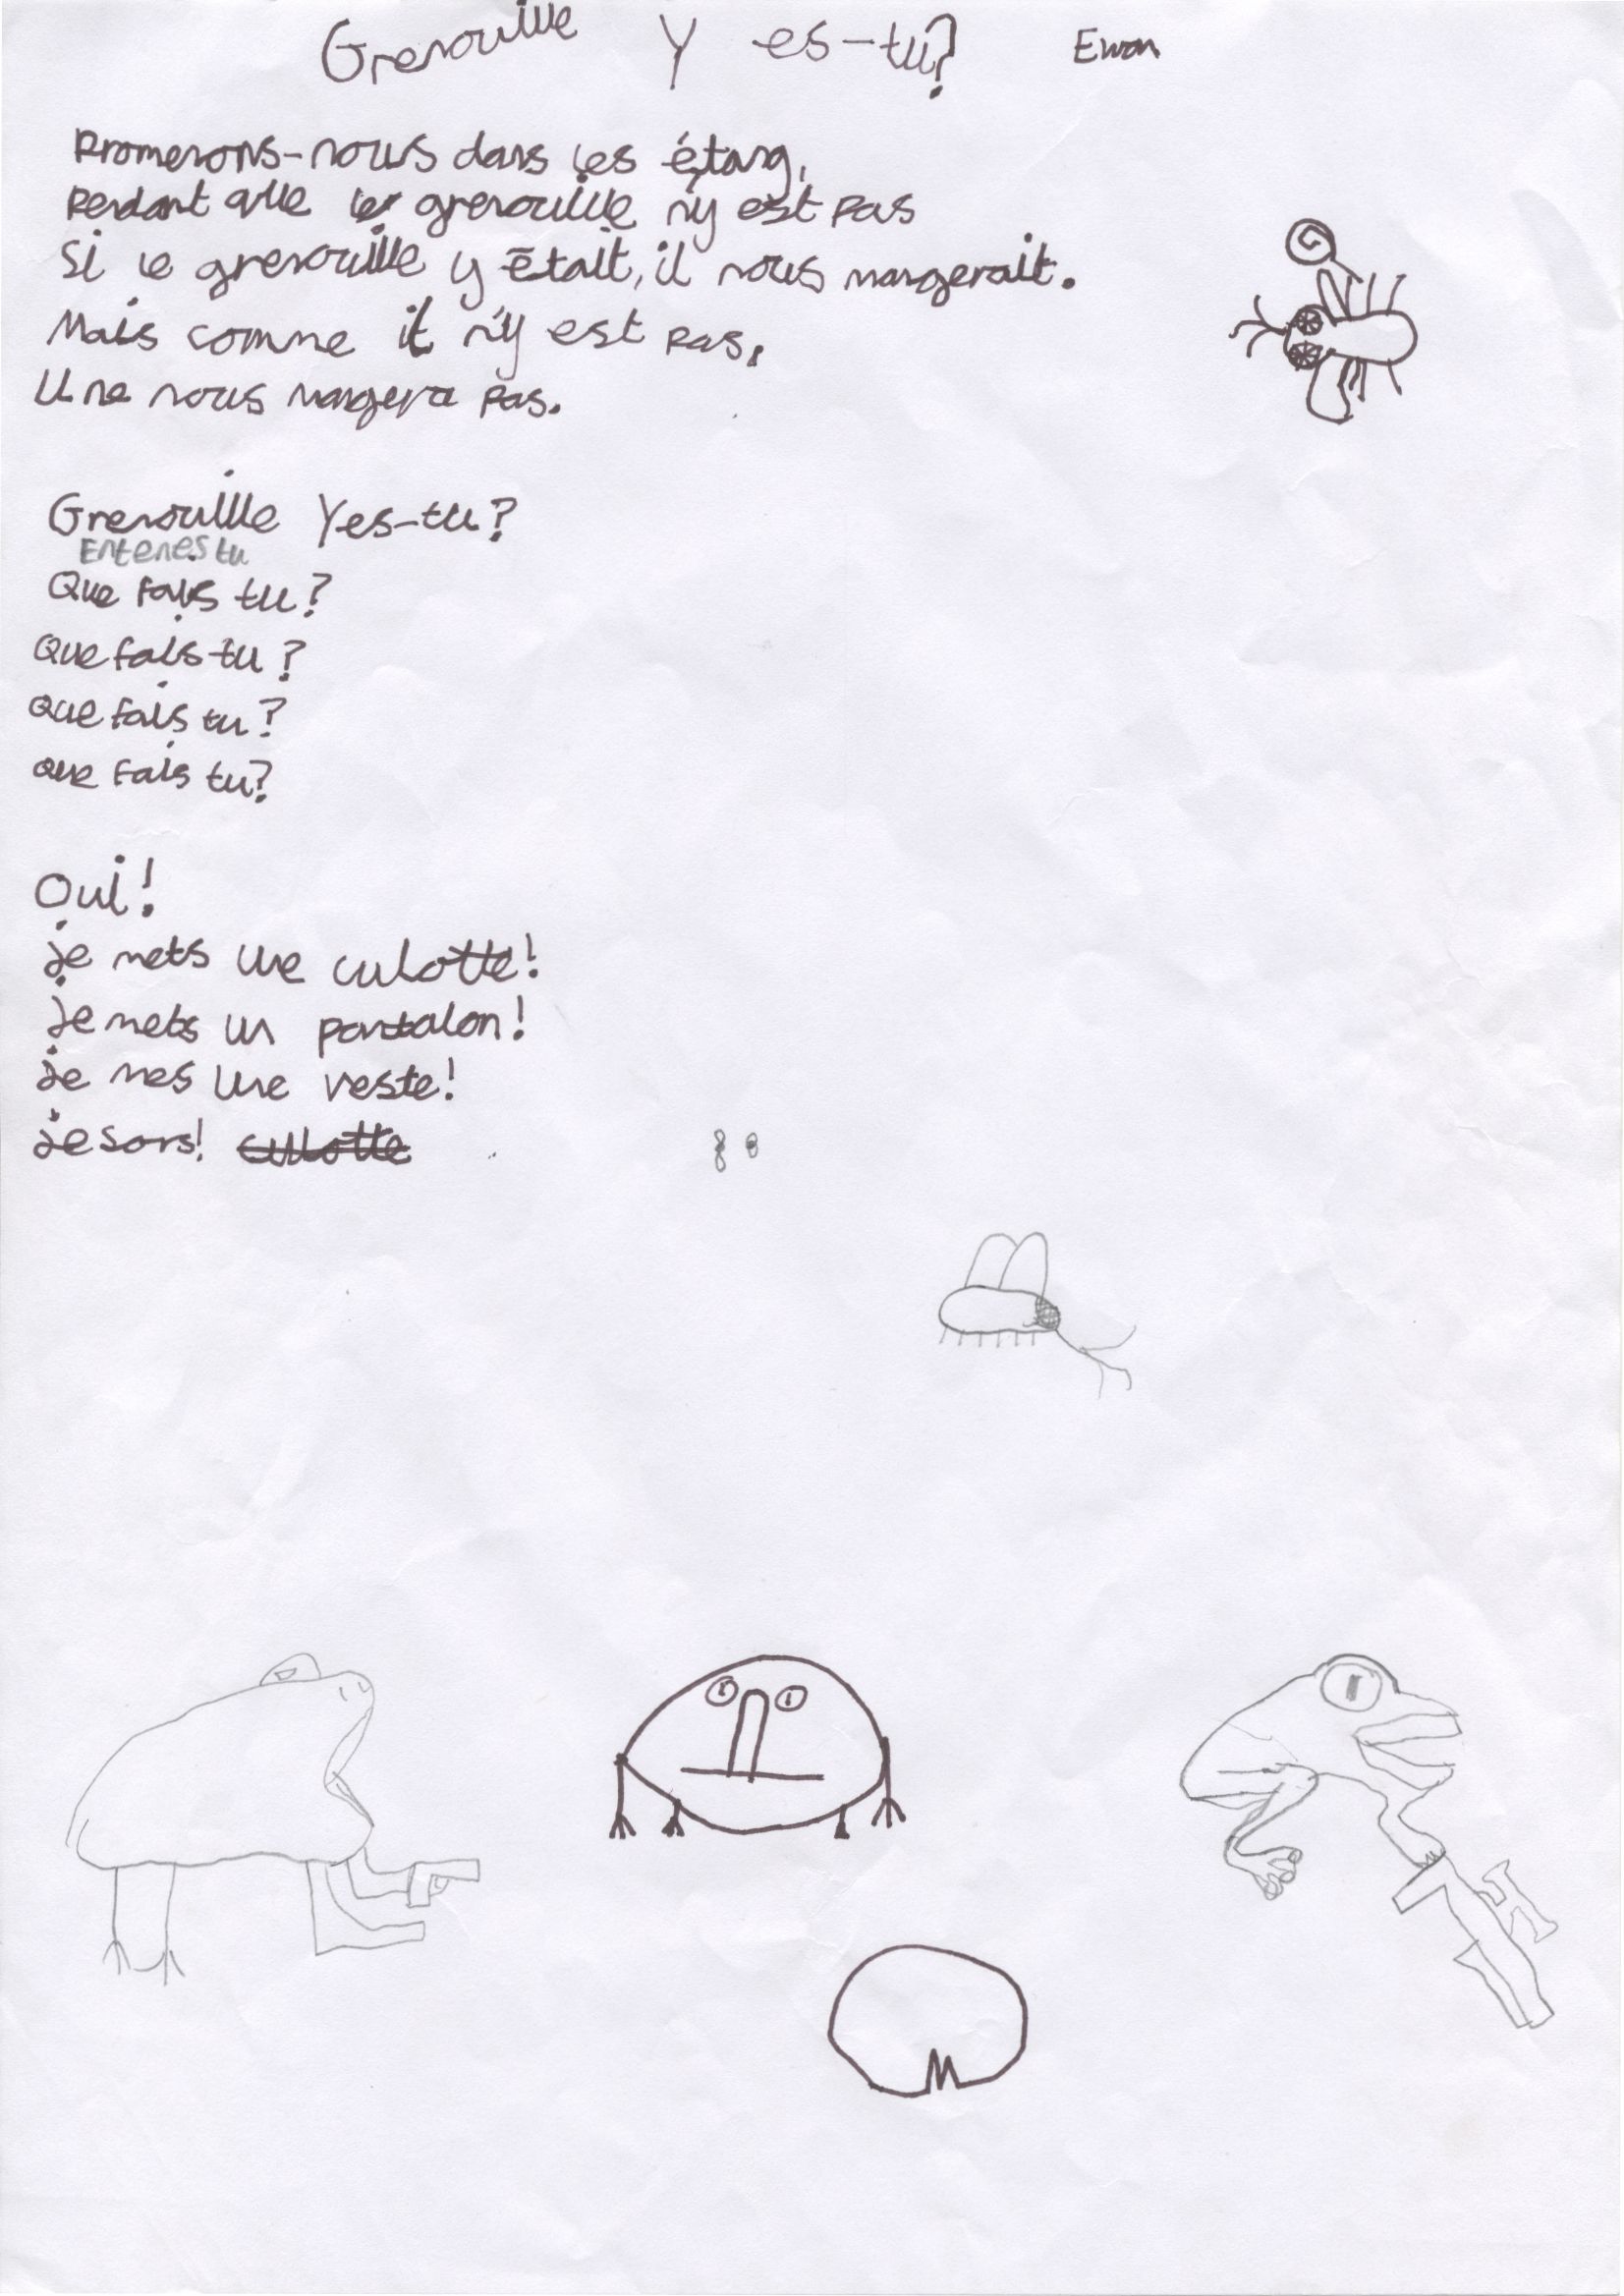 Grenouille Y es-tu? Ewan
Promenons-nous dans les étang,
Pendant que le grenouille n'y est pas
Si le grenouille y était, il nous mangerait.
Mais comme il n'y est pas,
Il ne nous mangera pas.
Grenouille Y es-tu?
Entenes tu
Que fais tu?
Que fais-tu?
Que fais tu?
que fais tu?
Oui!
je mets une culotte!
je mets un pantalon!
je mes une veste!
je sors! culotte